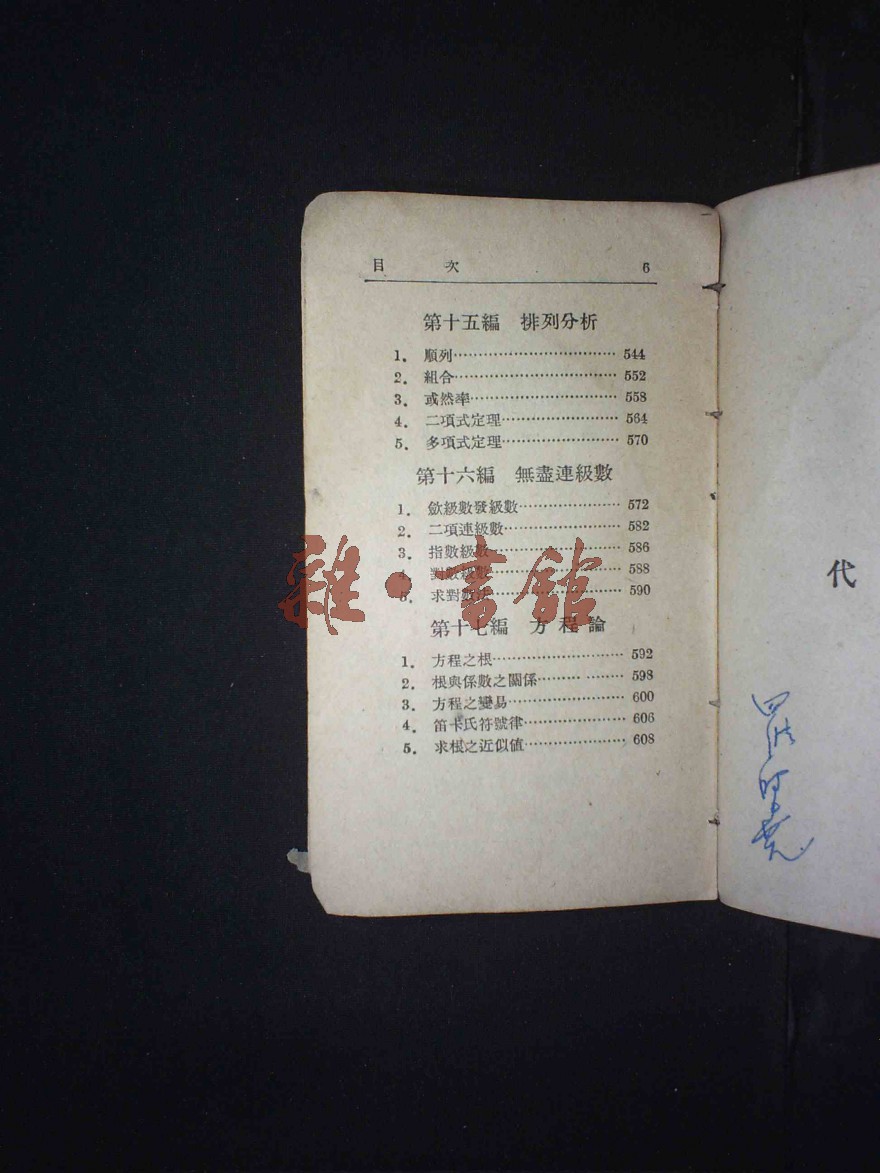 目 次 6
第十五編 排列分析
1. 順列…………………………… 544
2. 組合…………………………… 552
3. 或然率………………………… 558
4. 二項式定理…………………… 564
5. 多項式定理…………………… 570
第十六編 無盡連級數
1. 歛級數發級數………………… 572
2. 二項連級數…………………… 582
3. 指數級數……………………… 586
4. 對數級數……………………… 588
5. 求對數法……………………… 590
第十七編 方程論
1. 方程之根……………………… 592
2. 根與係數之關係……… ……… 598
3. 方程之變易…………………… 600
4. 笛卡氏符號律………………… 606
5. 求根之近似値………………… 608
雜·書館
代